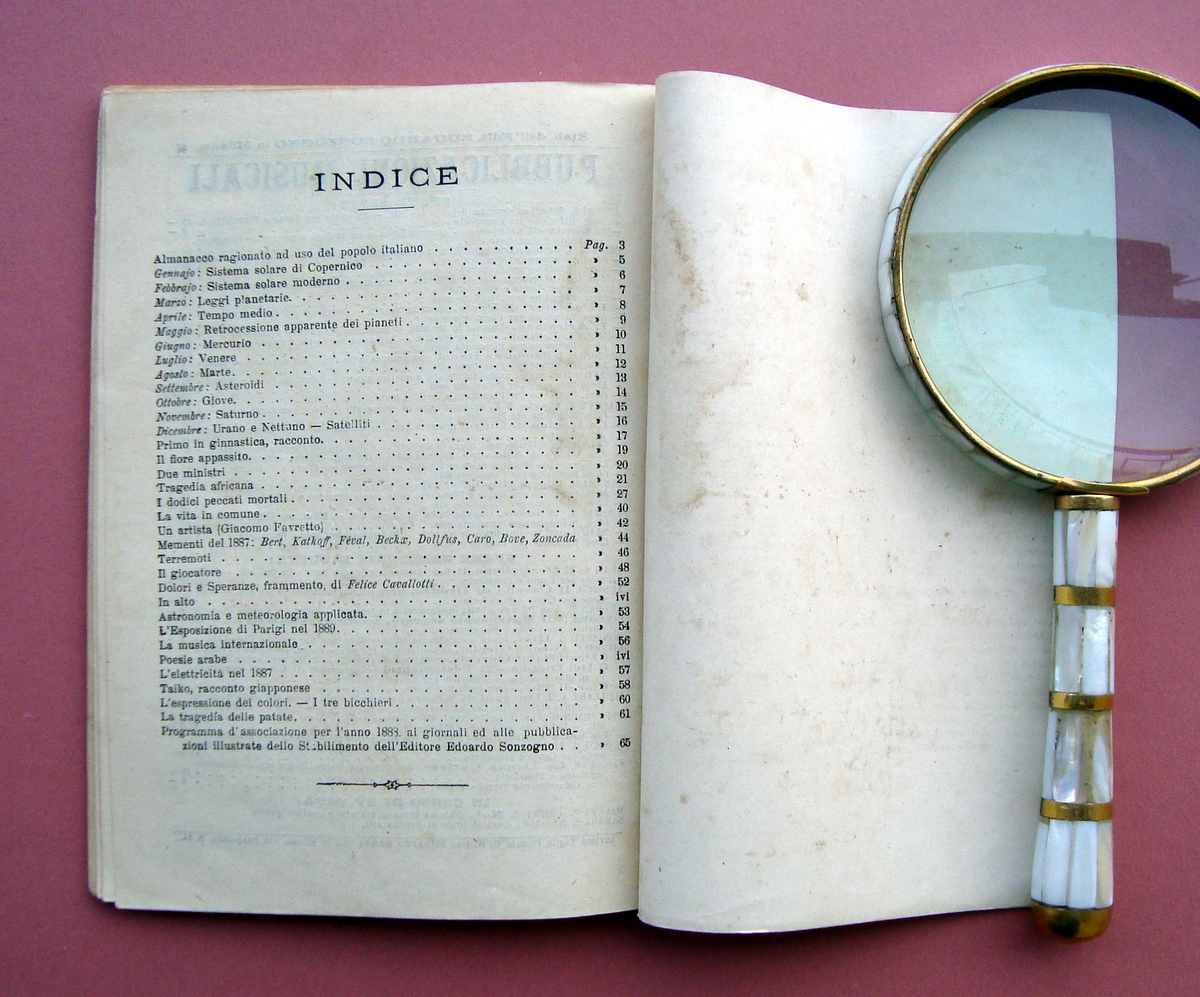 INDICE
Almanacco ragionato ad uso del popolo italiano . . . . . . . . . . Pag. 3
Gennajo: Sistema solare di Copernico . . . . . . . . . . » 5
Febbrajo: Sistema solare moderno . . . . . . . . . . » 6
Marzo: Leggi planetarie. . . . . . . . . . . » 7
Aprile: Tempo medio . . . . . . . . . . » 8
Maggio: Retrocessione apparente dei pianeti . . . . . . . . . . » 9
Giugno: Mercurio . . . . . . . . . . » 10
Luglio: Venere . . . . . . . . . . » 11
Agosto: Marte. . . . . . . . . . . » 12
Settembre: Asteroidi . . . . . . . . . . » 13
Ottobre: Giove. . . . . . . . . . . » 14
Novembre: Saturno . . . . . . . . . . » 15
Dicembre: Urano e Nettuno — Satelliti . . . . . . . . . . » 16
Primo in ginnastica, racconto. . . . . . . . . . . » 17
Il fiore appassito. . . . . . . . . . . » 19
Due ministri . . . . . . . . . . » 20
Tragedia africana . . . . . . . . . . » 21
I dodici peccati mortali . . . . . . . . . . » 27
La vita in comune . . . . . . . . . . » 40
Un artista (Giacomo Favretto) . . . . . . . . . . » 42
Mementi del 1887: Bert, Katkoff, Féval, Beckx, Dollfus, Caro, Bove, Zoncada » 44
Terremoti . . . . . . . . . . » 46
Il giocatore . . . . . . . . . . » 48
Dolori e Speranze, frammento, di Felice Cavallotti . . . . . . . . . . » 52
In alto . . . . . . . . . . » ivi
Astronomia e meteorologia applicata. . . . . . . . . . . » 53
L'Esposizione di Parigi nel 1889. . . . . . . . . . . » 54
La musica internazionale . . . . . . . . . . » 56
Poesie arabe . . . . . . . . . . » ivi
L'elettricità nel 1887 . . . . . . . . . . » 57
Taiko, racconto giapponese . . . . . . . . . . » 58
L'espressione dei colori. — I tre bicchieri . . . . . . . . . . » 60
La tragedia delle patate. . . . . . . . . . . » 61
Programma d'associazione per l'anno 1888. ai giornali ed alle pubblica-
zioni illustrate dello Stabilimento dell'Editore Edoardo Sonzogno . . » 65